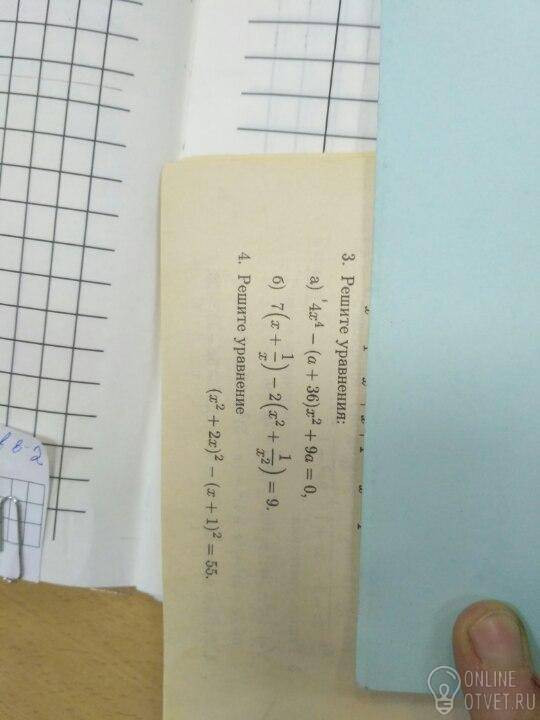 3. Решите уравнения:
а) 4x⁴ − (a + 36)x² + 9a = 0,
б) 7(x + 1/x) − 2(x² + 1/x²) = 9.
4. Решите уравнение
(x² + 2x)² − (x + 1)² = 55.
ONLINE
OTVET.RU